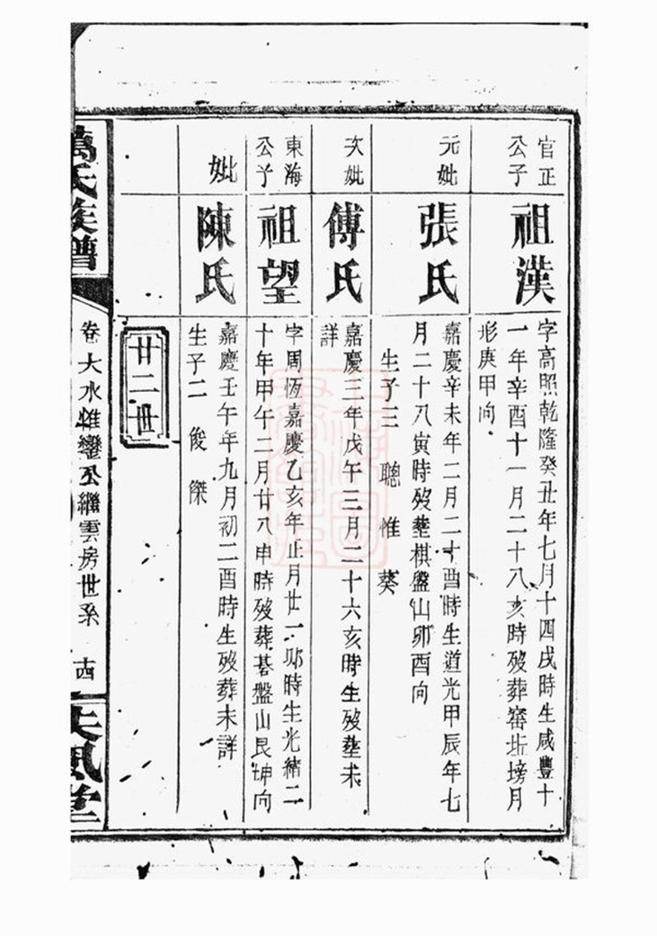 官正
公子
祖漢
字高照乾隆癸丑年七月十四戌時生咸豐十
一年辛酉十一月二十八亥時歿葬窰坵塝月
形庚甲向
元妣
張氏
嘉慶辛未年二月二十酉時生道光甲辰年七
月二十八寅時歿塟棋盤山卯酉向
生子三 聰 惟 葵
次妣
傅氏
嘉慶三年戊午三月二十六亥時生歿塟未
詳
東海
公子
祖望
字周恆嘉慶乙亥年正月廿一卯時生光緒二
十年甲午二月廿八申時歿葬碁盤山艮坤向
妣
陳氏
嘉慶壬午年九月初二酉時生歿葬未詳
生子二 俊 傑
廿二世
萬氏族譜
卷大水堆巒公繼雲房世系
古
夫風堂